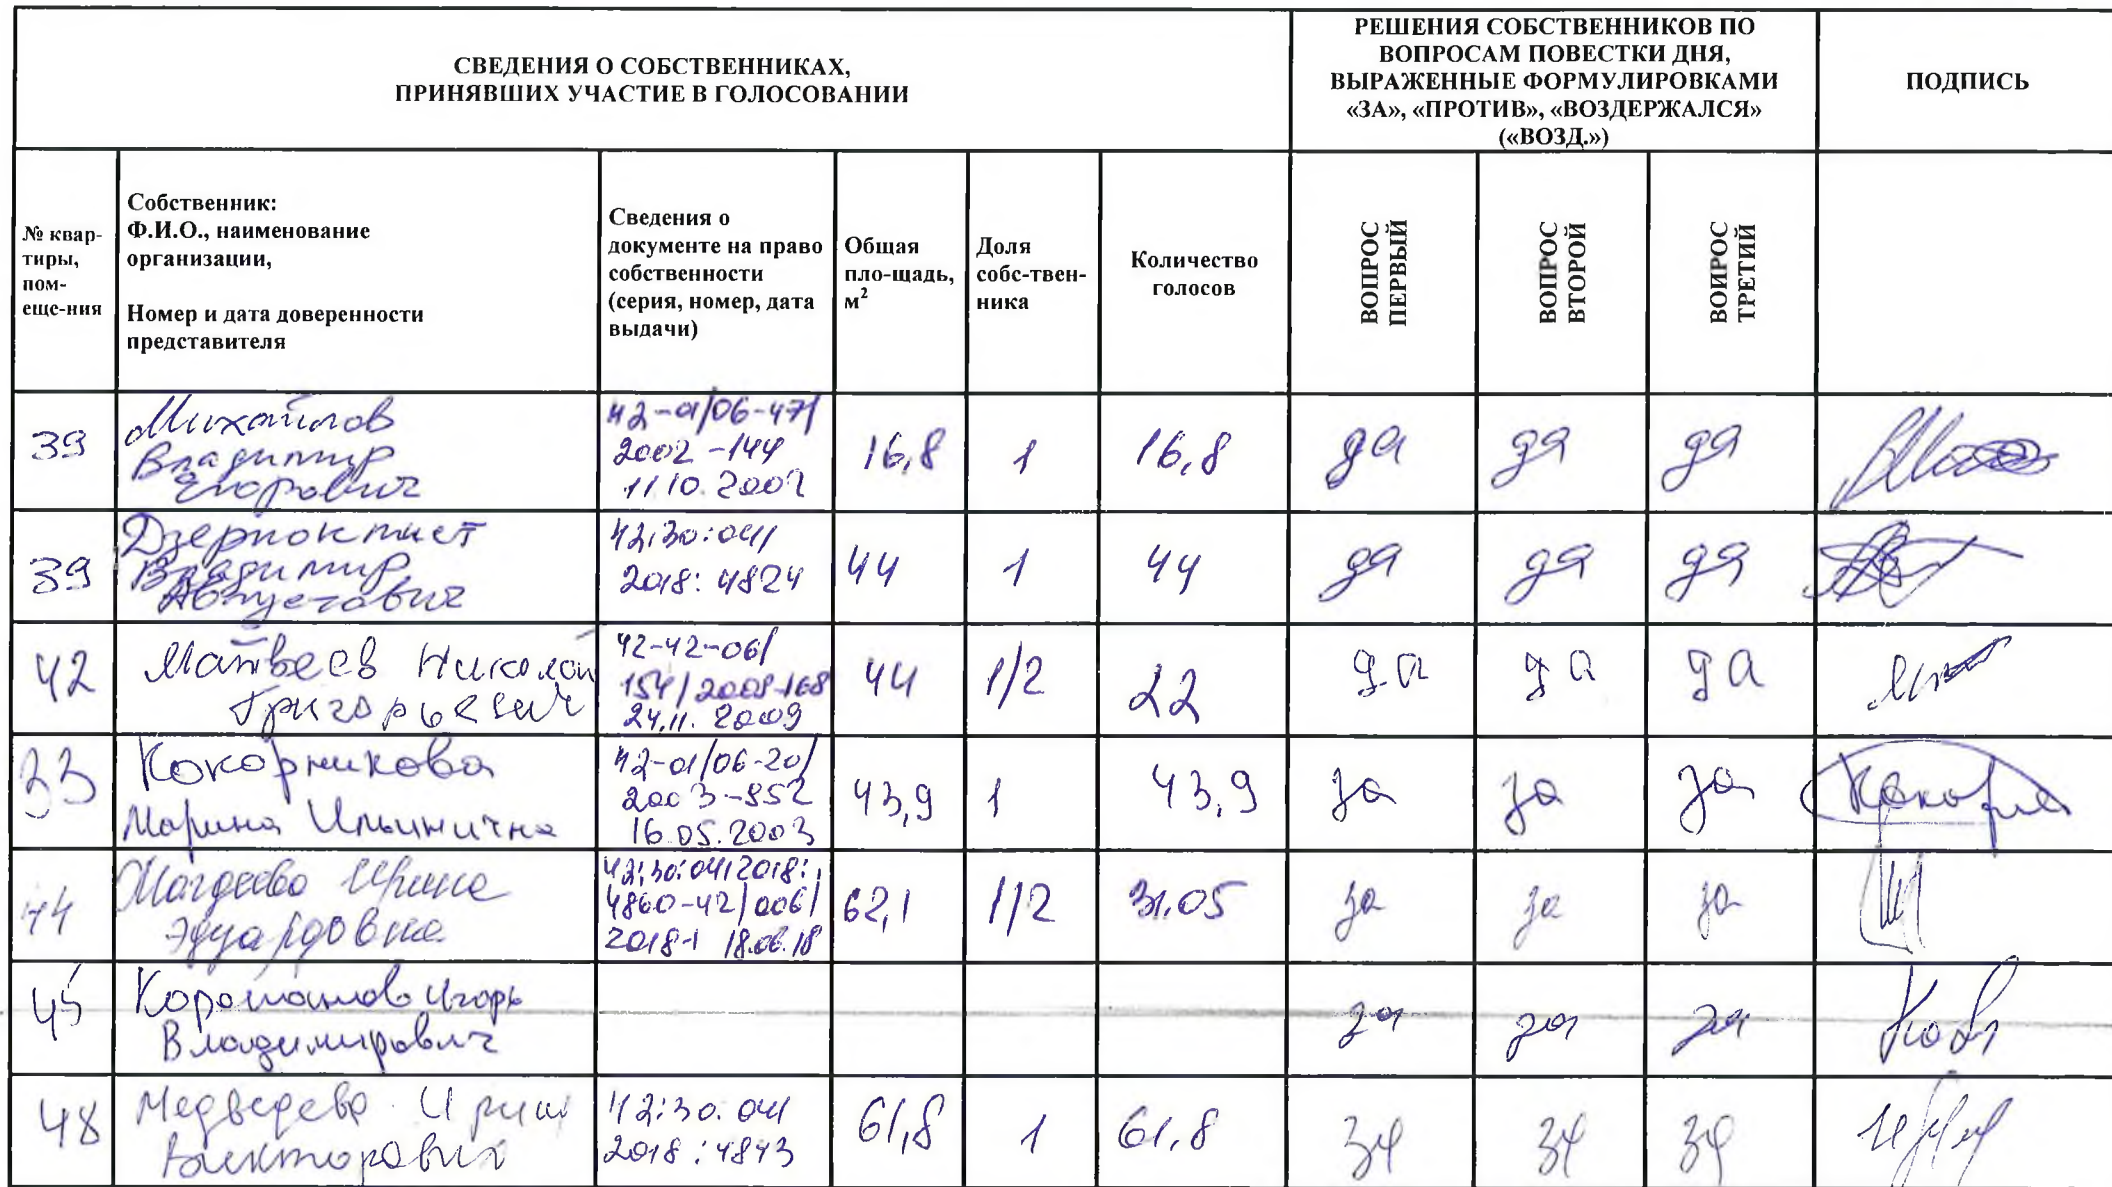 СВЕДЕНИЯ О СОБСТВЕННИКАХ,
ПРИНЯВШИХ УЧАСТИЕ В ГОЛОСОВАНИИ
РЕШЕНИЯ СОБСТВЕННИКОВ ПО
ВОПРОСАМ ПОВЕСТКИ ДНЯ,
ВЫРАЖЕННЫЕ ФОРМУЛИРОВКАМИ
«ЗА», «ПРОТИВ», «ВОЗДЕРЖАЛСЯ»
(«ВОЗД.»)
ПОДПИСЬ
№ квар-
тиры,
пом-
еще-ния
Собственник:
Ф.И.О., наименование
организации,
Номер и дата доверенности
представителя
Сведения о
документе на право
собственности
(серия, номер, дата
выдачи)
Общая
пло-щадь,
м²
Доля
собс-твен-
ника
Количество
голосов
ВОПРОС
ПЕРВЫЙ
ВОПРОС
ВТОРОЙ
ВОИРОС
ТРЕТИЙ
39
Михайлов
Владимир
Егорович
42-01/06-47/
2002-144
11.10.2002
16,8
1
16,8
да
да
да
39
Владимир
Августович
42:30:041
2018:4824
44
1
44
да
да
да
42
Матвеев Николай
Григорьевич
42-42-06/
154/2009-168
24.11.2009
44
1/2
22
да
да
да
33
Кокорникова
Марина Ильинична
42-01/06-20/
2003-852
16.05.2003
43,9
1
43,9
за
за
за
44
Магдеева Ирина
Эдуардовна
42:30:0412018:
4860-42/006/
2018-1 18.06.18
62,1
1/2
31.05
за
за
за
45
Игорь
Владимирович
за
за
за
48
Медведева
42:30:041
2018:4843
61,8
1
61.8
за
за
за